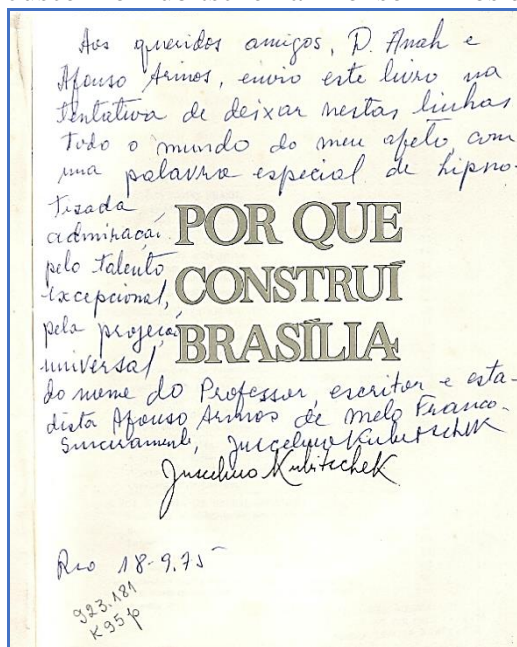 Aos queridos amigos, D. Anah e
Afonso Arinos, envio este livro na
tentativa de deixar nestas linhas
todo o mundo do meu afeto, com
uma palavra especial de hipno-
tizada
admiração
pelo talento
excepcional,
pela projeção
universal,
POR QUE
CONSTRUÍ
BRASÍLIA
do nome do Professor, escritor e esta-
dista Afonso Arinos de Melo Franco.
Sinceramente, Juscelino Kubitschek
Juscelino Kubitschek
Rio 18-9.75
923.181
K95p